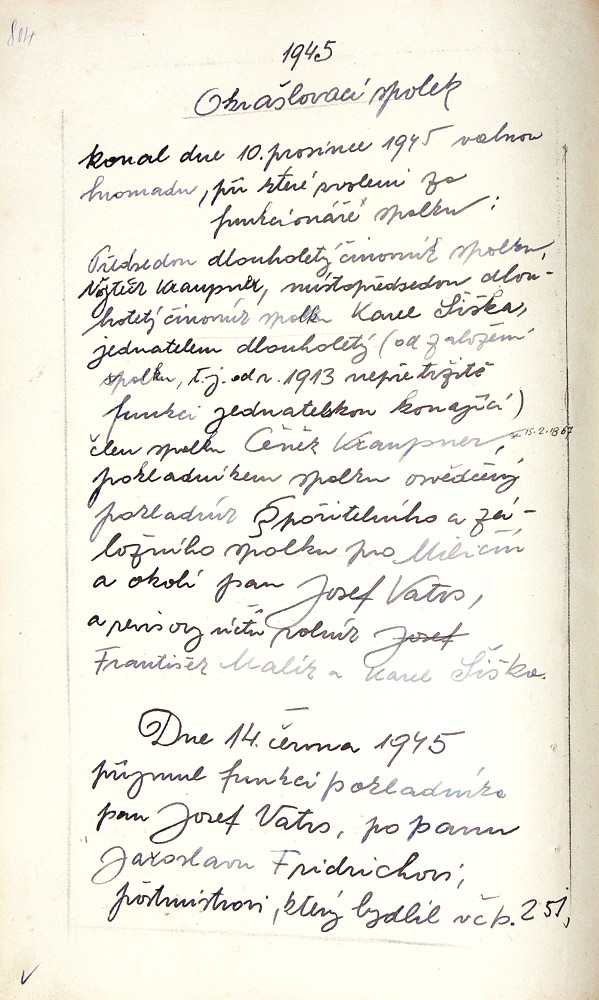 814
1945
Okrašlovací spolek
konal dne 10. prosince 1945 valnou
hromadu, při které zvoleni za
funkcionáře spolku:
Předsedou dlouholetý činovník spolku,
Vojtěch Kraupner, místopředsedou dlou-
holetý činovník spolku Karel Šiška,
jednatelem dlouholetý (od založení
spolku, t.j. od r. 1913 nepřetržitě
funkci jednatelskou konající)
člen spolku Čeněk Kraupner, 15.2.1867
pokladníkem spolku osvědčený
pokladník Spořitelního a zá-
ložního spolku pro Miličín
a okolí pan Josef Vatrs,
a revisory účtů rolník Josef
František Malík a Karel Šiška.
Dne 14. června 1945
přijmul funkci pokladníka
pan Josef Vatrs, po panu
Jaroslavu Fridrichovi,
poštmistrovi, který bydlil v čp. 251,